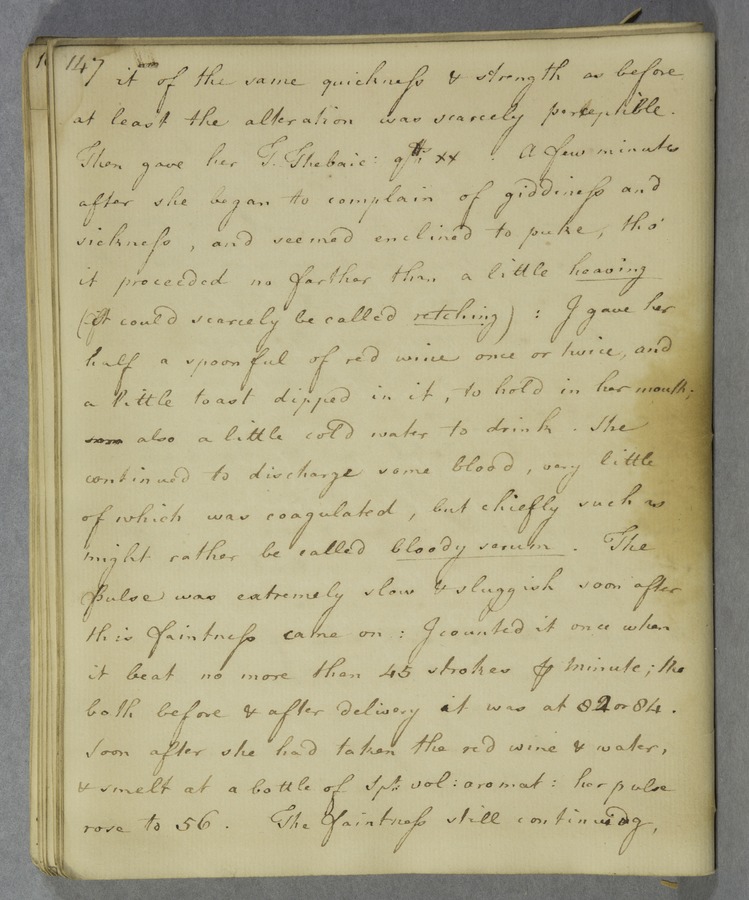 147
it of the same quickness & strength as before
at least the alteration was scarcely perceptible.
Then gave her T. Thebaic: gtts xx . A few minutes
after she began to complain of giddiness and
sickness, and seemed enclined to puke, tho'
it proceeded no farther than a little heaving
(It could scarcely be called retching) : I gave her
half a spoonful of red wine once or twice, and
a little toast dipped in it, to hold in her mouth;
also a little cold water to drink. She
continued to discharge some blood, very little
of which was coagulated, but chiefly such as
might rather be called bloody serum. The
pulse was extremely slow & sluggish soon after
this faintness came on : I counted it once when
it beat no more than 45 strokes minute; tho
both before & after delivery it was at 82 or 84.
Soon after she had taken the red wine & water,
& smelt at a bottle of Spt: vol: aromat: her pulse
rose to 56. The faintness still continuing,